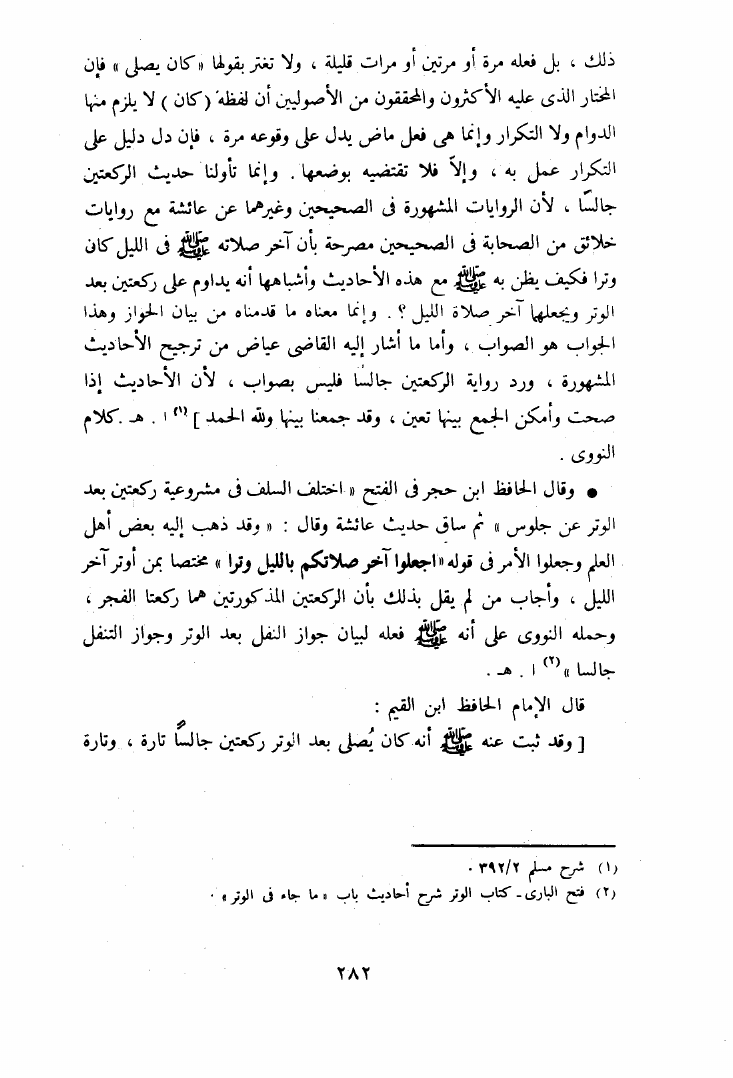 ذلك ، بل فعله مرة أو مرتين أو مرات قليلة ، ولا تغتر بقولها « كان يصلى » فإن
المختار الذى عليه الأكثرون والمحققون من الأصوليين أن لفظه ( كان ) لا يلزم منها
الدوام ولا التكرار وإنما هى فعل ماض يدل على وقوعه مرة ، فإن دل دليل على
التكرار عمل به ، وإلاّ فلا تقتضيه بوضعها . وإنما تأولنا حديث الركعتين
جالسًا ، لأن الروايات المشهورة فى الصحيحين وغيرهما عن عائشة مع روايات
خلائق من الصحابة فى الصحيحين مصرحة بأن آخر صلاته ﷺ فى الليل كان
وترا فكيف يظن به ﷺ مع هذه الأحاديث وأشباهها أنه يداوم على ركعتين بعد
الوتر ويجعلهما آخر صلاة الليل ؟ . وإنما معناه ما قدمناه من بيان الجواز وهذا
الجواب هو الصواب ، وأما ما أشار إليه القاضى عياض من ترجيح الأحاديث
المشهورة ، ورد رواية الركعتين جالسًا فليس بصواب ، لأن الأحاديث إذا
صحت وأمكن الجمع بينها تعين ، وقد جمعنا بينها ولله الحمد ] (١) ا . هـ . كلام
النووى .
● وقال الحافظ ابن حجر فى الفتح « اختلف السلف فى مشروعية ركعتين بعد
الوتر عن جلوس » ثم ساق حديث عائشة وقال : « وقد ذهب إليه بعض أهل
العلم وجعلوا الأمر فى قوله « اجعلوا آخر صلاتكم بالليل وترا » مختصا بمن أوتر آخر
الليل ، وأجاب من لم يقل بذلك بأن الركعتين المذكورتين هما ركعتا الفجر ،
وحمله النووى على أنه ﷺ فعله لبيان جواز النفل بعد الوتر وجواز التنفل
جالسا » (٢) ا . هـ .
قال الإمام الحافظ ابن القيم :
[ وقد ثبت عنه ﷺ أنه كان يُصلى بعد الوتر ركعتين جالسًا تارة ، وتارة
(١) شرح مسلم ٣٩٢/٢ .
(٢) فتح البارى ـ كتاب الوتر شرح أحاديث باب « ما جاء فى الوتر » .
٢٨٢